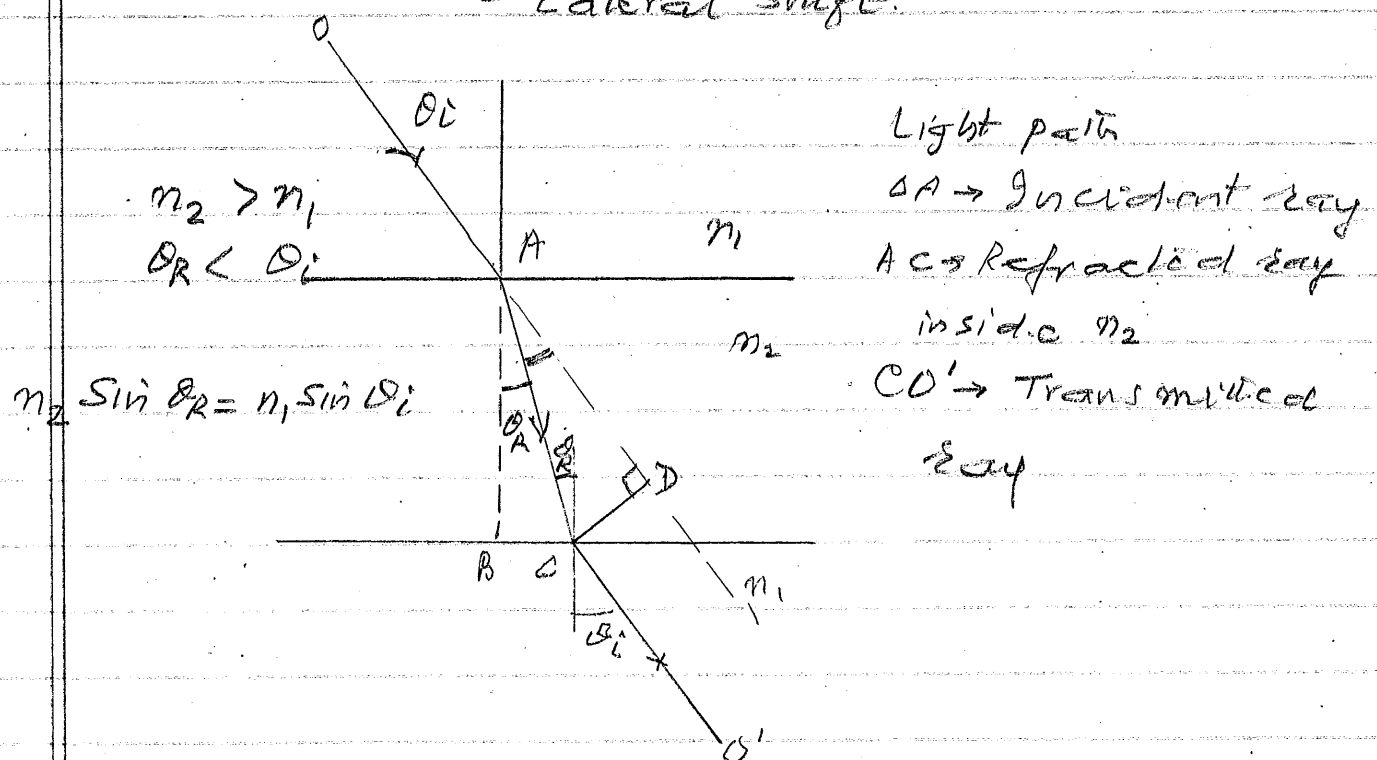 Lateral shift.
O
θi
n₂ > n₁
θR < θi
A
n₁
n₂
n₂ Sin θR = n₁ Sin θi
θR
θR
D
B C
n₁
θi
O'
Light path
OA → Incident ray
AC → Refracted ray
inside n₂
CO' → Transmitted
ray